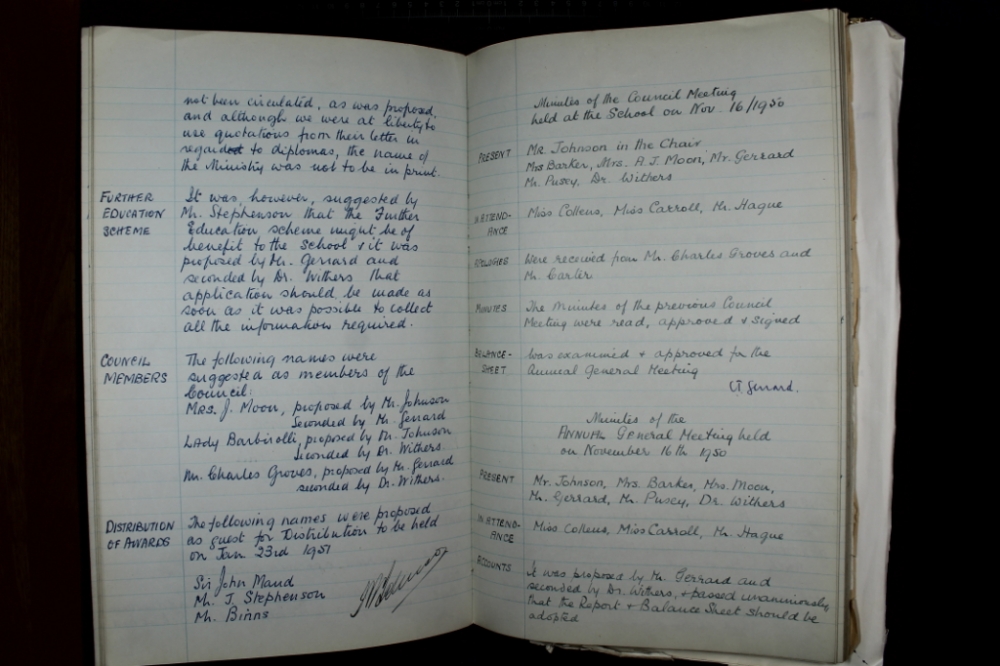 not been circulated, as was proposed,
and although we were at liberty to
use quotations from their letter in
regard to diplomas, the name of
the Ministry was not to be in print.
FURTHER EDUCATION SCHEME
It was, however, suggested by
Mr. Stephenson that the Further
Education scheme might be of
benefit to the School & it was
proposed by Mr. Gerrard and
seconded by Dr. Withers that
application should be made as
soon as it was possible to collect
all the information required.
COUNCIL MEMBERS
The following names were
suggested as members of the
Council:
MRS. J. Moon, proposed by Mr. Johnson
seconded by Mr. Gerrard
Lady Barbirolli, proposed by Mr. Johnson
seconded by Dr. Withers.
Mr. Charles Groves, proposed by Mr. Gerrard
seconded by Dr. Withers.
DISTRIBUTION OF AWARDS
The following names were proposed
as guest for Distribution to be held
on Jan. 23rd 1951
Sir John Maud
Mr. J. Stephenson
Mr. Binns
Minutes of the Council Meeting
held at the School on Nov. 16/1950
PRESENT
MR. Johnson in the Chair
Mrs Barker, Mrs. A. J. Moon, Mr. Gerrard
Mr. Pusey, Dr. Withers
IN ATTEND-
ANCE
Miss Collens, Miss Carroll, Mr. Hague
APOLOGIES
Were received from Mr. Charles Groves and
Mr. Carter
MINUTES
The Minutes of the previous Council
Meeting were read, approved & signed
BALANCE-
SHEET
Was examined & approved for the
Annual General Meeting
Gerrard.
Minutes of the
ANNUAL General Meeting held
on November 16th 1950
PRESENT
Mr. Johnson, Mrs. Barker, Mrs. Moon,
Mr. Gerrard, Mr. Pusey, Dr. Withers
IN ATTEND-
ANCE
Miss Collens, Miss Carroll, Mr. Hague
ACCOUNTS
It was proposed by Mr. Gerrard and
seconded by Dr. Withers, & passed unanimously
that the Report & Balance Sheet should be
adopted